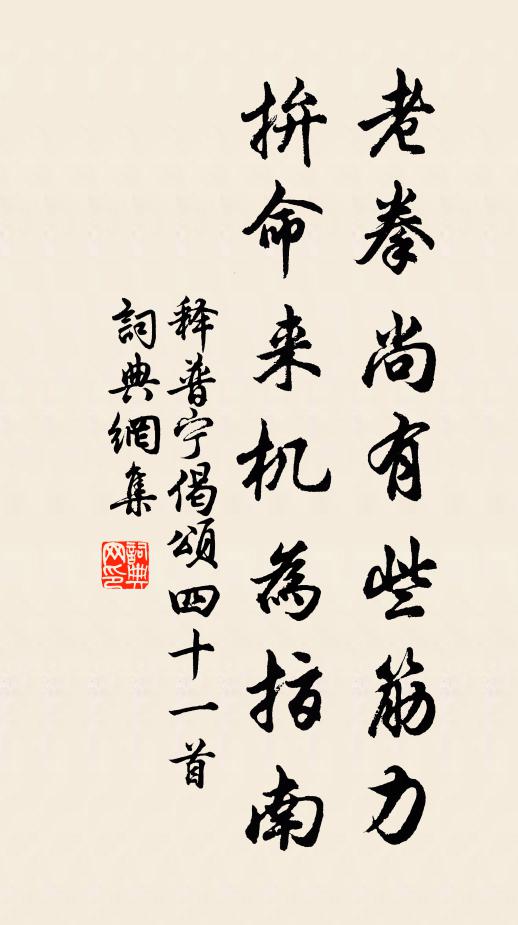 老拳尚有些筋力
拚命来机为指南
释普宁偈颂四十一首
詞典網集
詞典网印